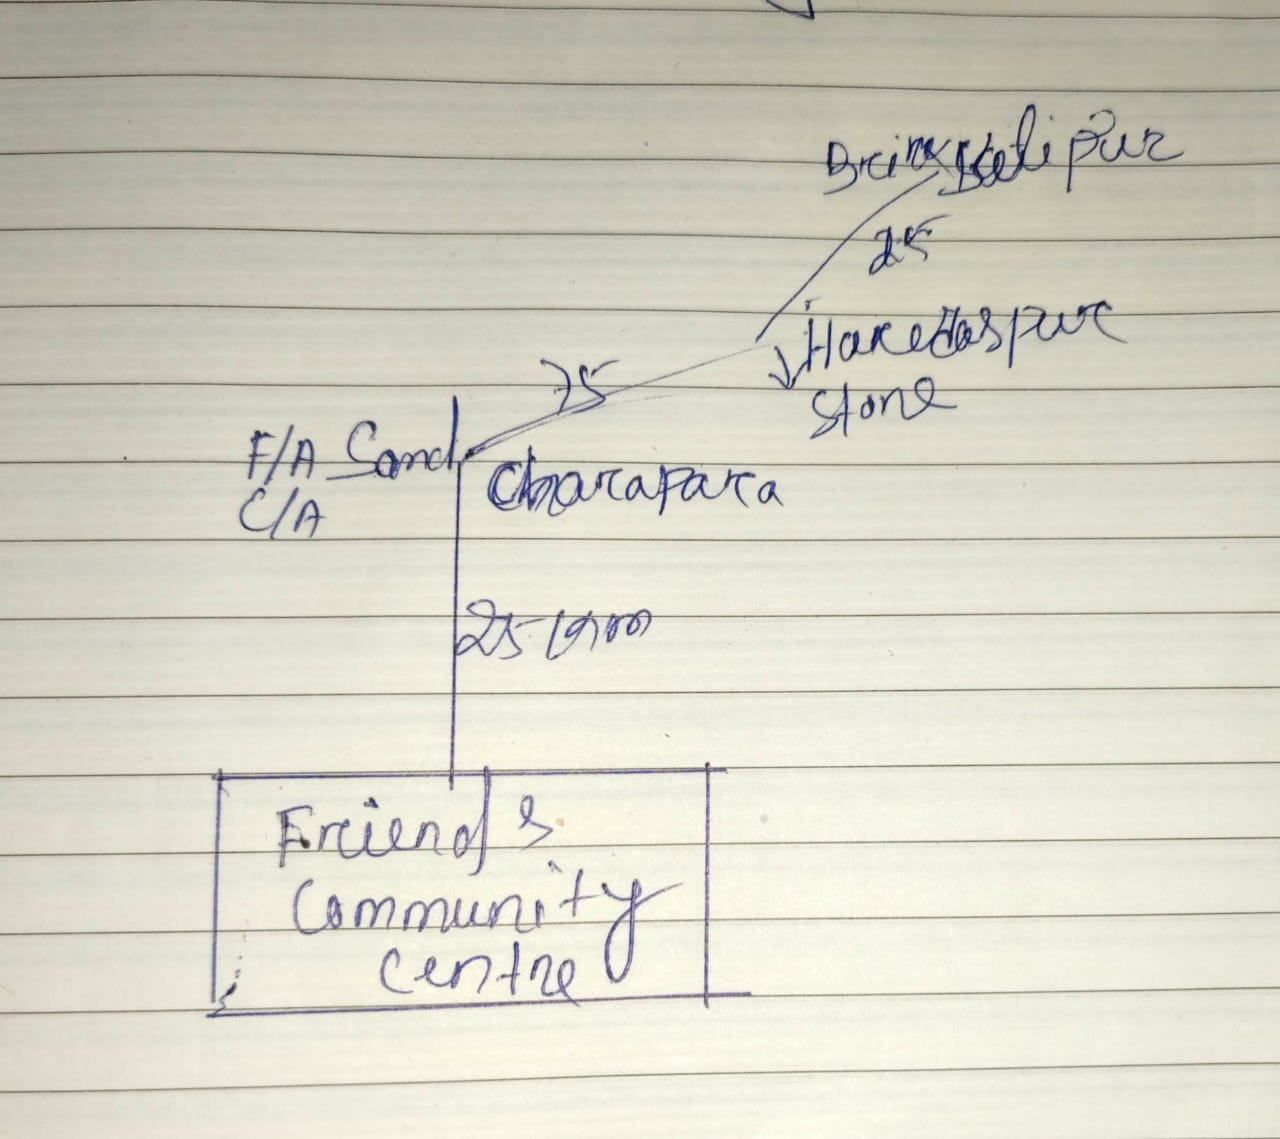 Brick Kalipur
25
Haredaspur
Stone
75
F/A Sand
C/A
Charapara
25 km
Friend's
Community
Centre